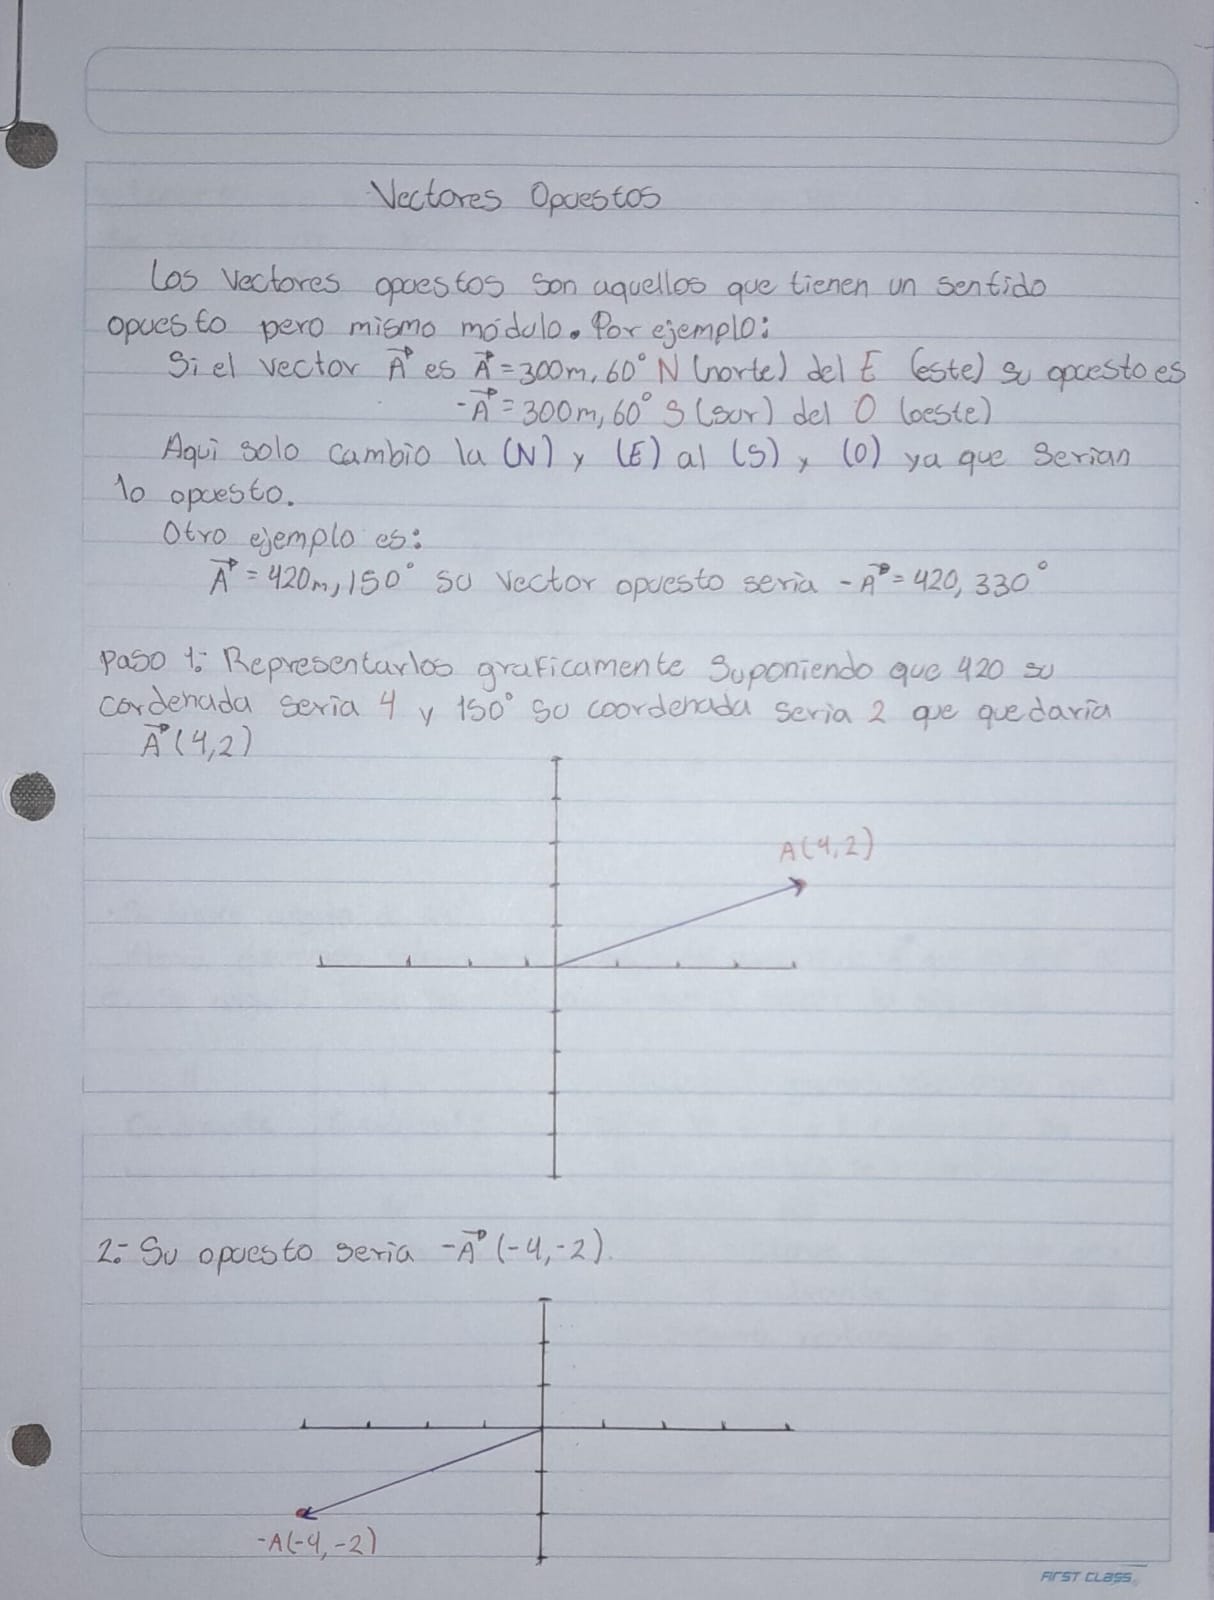 Vectores Opuestos
Los Vectores opuestos son aquellos que tienen un sentido
opuesto pero mismo módulo. Por ejemplo:
Si el vector A⃗ es A⃗ = 300m, 60° N (norte) del E (este) su opuesto es
-A⃗ = 300m, 60° S (sur) del O (oeste)
Aqui solo cambio la (N) y (E) al (S) y (O) ya que serian
lo opuesto.
Otro ejemplo es:
A⃗ = 420m, 150° su vector opuesto seria -A⃗ = 420, 330°
Paso 1:- Representarlos graficamente Suponiendo que 420 su
cordenada seria 4 y 150° su coordenada seria 2 que quedaria
A⃗ (4,2)
A(4,2)
2:- Su opuesto seria -A⃗ (-4,-2).
-A(-4,-2)
FIRST CLASS